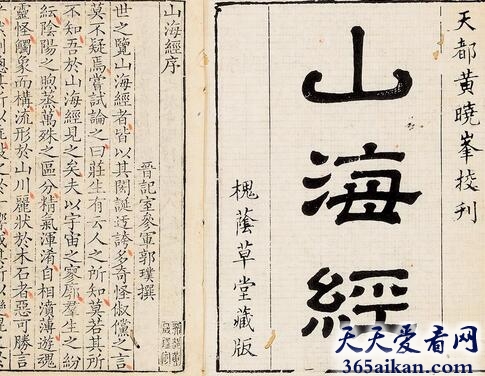 天都黃曉峯挍刊
山海經
槐蔭草堂藏版
山海經序
晉記室參軍郭璞撰
世之覽山海經者皆以其閎誕迂誇多奇怪俶儻之言
莫不疑焉嘗試論之曰莊生有云人之所知莫若其所
不知吾於山海經見之矣夫以宇宙之寥廓羣生之紛
紜陰陽之煦蒸萬殊之區分精氣渾淆自相濆薄遊魂
靈怪觸象而構流形於山川麗狀於木石者惡可勝言
天天爱看网
365aikan.com